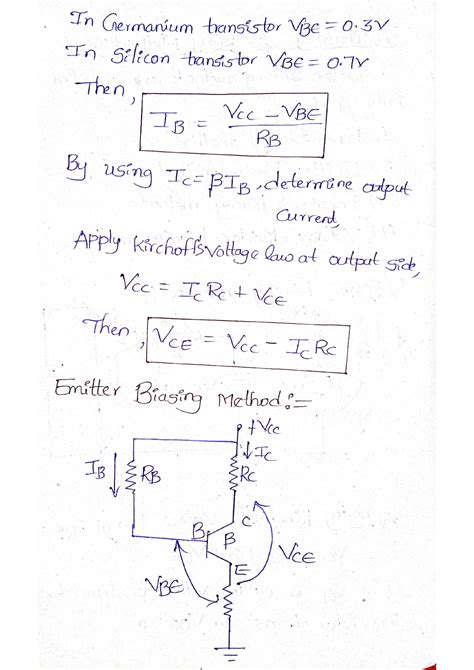 In Germanium transistor VBE = 0.3V
In Silicon transistor VBE = 0.7V
Then,
IB = VCC - VBE / RB
By using IC = βIB, determine output
current,
Apply Kirchoff's voltage law at output side,
VCC = IC RC + VCE
Then, VCE = VCC - IC RC
Emitter Biasing Method :-
+VCC
IC
IB
RB
RC
C
B
β
VCE
E
VBE